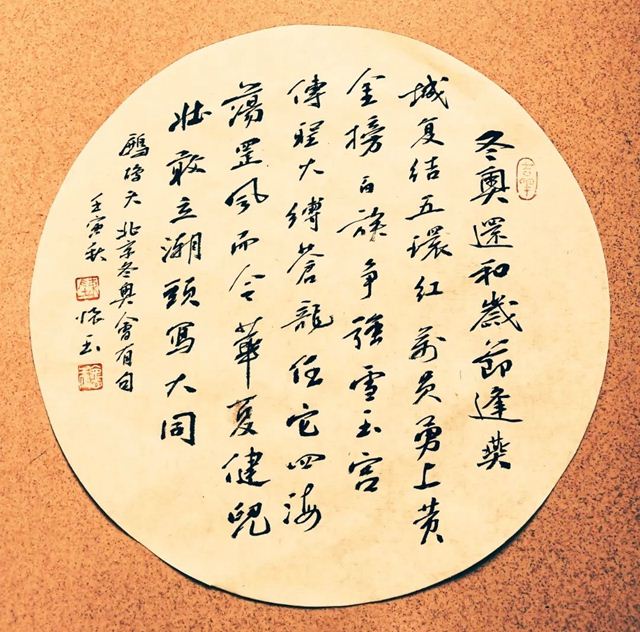 冬奧還和歲節逢燕
城复结五環红萬员勇上黄
金榜百族争强雪玉宫
程大縛蒼龍任它四海
蕩罡风而今華夏健兒
壮敢立潮頭寫大同
天 北京冬奥會有句
壬寅秋 怀玉